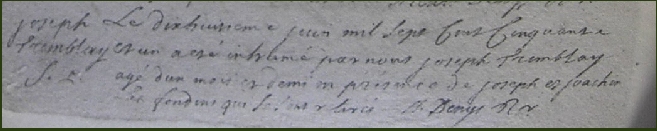 joseph Le dixhuitieme juin mil Sept Cent Cinquante
tremblay et un a eté inhumé par nous joseph tremblay
agé dun mois et demi en présence de joseph et joachin
qui se sont retirés Denys